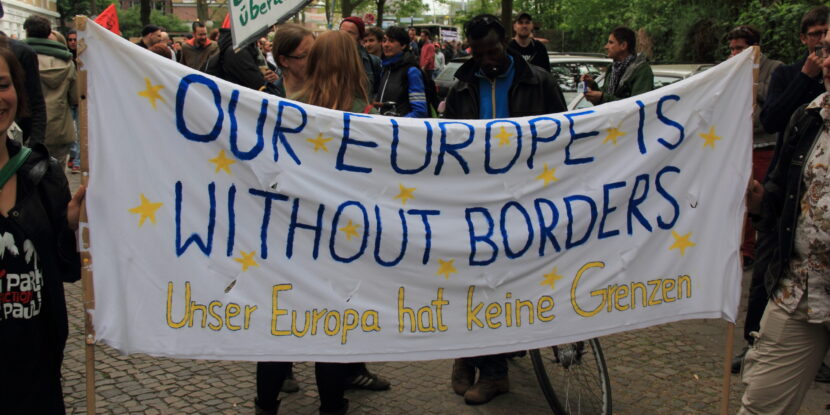 über
OUR EUROPE IS
WITHOUT BORDERS
Unser Europa hat keine Grenzen
PAUL